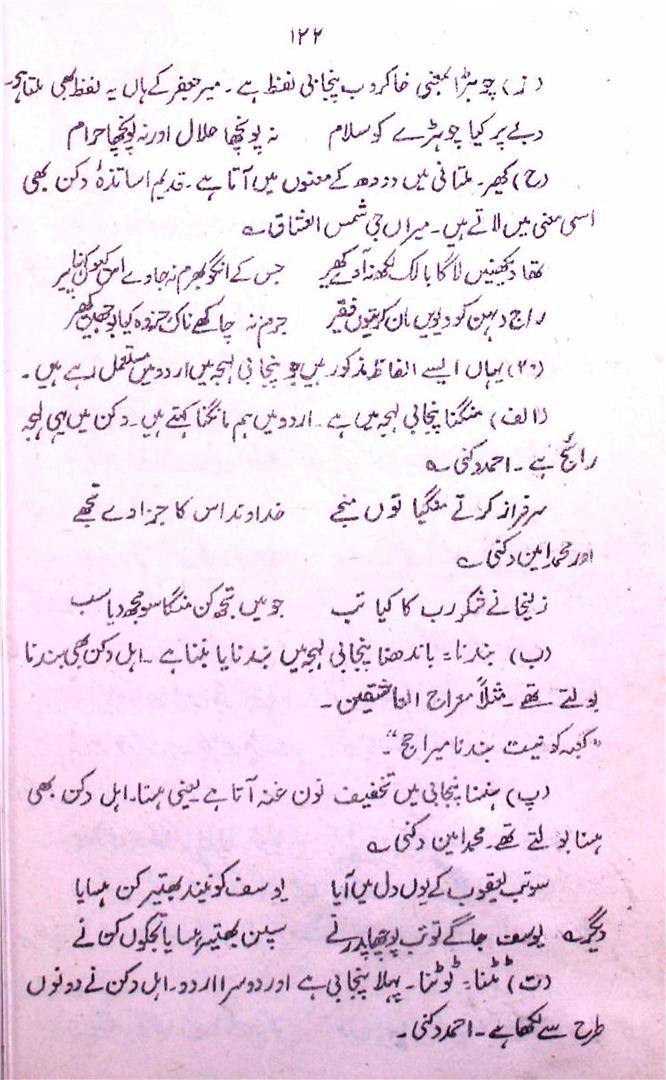 ۱۲۲
(ز) چوہڑا بمعنی خاکروب پنجابی لفظ ہے۔ میر جعفر کے ہاں یہ لفظ بھی ملتا ہے۔
دبے پر کیا چوہڑے کو سلام نہ پونچھا حلال اور نہ پونچھا حرام
(ح) کھیر۔ ملتانی میں دودھ کے معنوں میں آتا ہے۔ قدیم اساتذۂ دکن بھی
اسی معنی میں لاتے ہیں۔ میراں جی شمس العشاق ؎
تھا دیکھنیں لاگا بالک لکھ نہ آوے کھیر جس کے انگو بھرم نہ جاوے اس
راج دہین کو دیویں مان کریتوں فقیر جرم نہ چاکھے ناک خردہ کیا بوجھیں کھیر
(۲۰) یہاں ایسے الفاظ مذکور ہیں جو پنجابی لہجہ میں اردو میں مستعمل رہے ہیں۔
(الف) منگنا پنجابی لہجہ میں ہے۔ اردو میں ہم مانگنا کہتے ہیں۔ دکن میں یہی لہجہ
رائج ہے۔ احمد دکنی ؎
سرفراز کرتے منگیا توں منجے خداوند اس کا جزا دے تجھے
اور محمد امین دکنی ؎
زلیخا نے شکر رب کا کیا تب جو میں تجھ کن منگا سو مجھ دیا سب
(ب) بندنا = باندھنا پنجابی لہجہ میں بندنا یا بننا ہے۔ اہل دکن بھی بندنا
بولتے تھے۔ مثلاً معراج العاشقین۔
"کعبہ کو نیت بندنا میرا حج"۔
(پ) ہنسنا پنجابی میں تخفیف نون غنہ آتا ہے یعنی ہسنا۔ اہل دکن بھی
ہسنا بولتے تھے۔ محمد امین دکنی ؎
سو تب یعقوب کے یوں دل میں آیا یوسف کو نیند بھیتر کن ہسایا
دیگر ؎ یوسف جاگے تو تب پوچھیا پدر نے سپن بھیتر ہسایا تجکوں کن نے
(ت) ٹٹنا = ٹوٹنا۔ پہلا پنجابی ہے اور دوسرا اردو۔ اہل دکن نے دونوں
طرح سے لکھا ہے۔ احمد دکنی۔